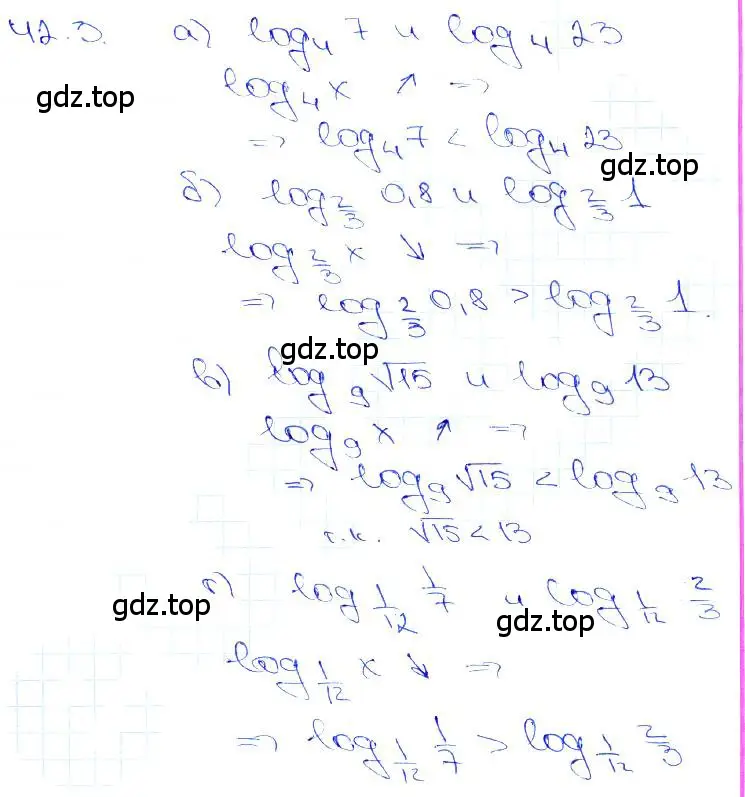 42.3. а) log₄ 7 и log₄ 23
gdz.top
log₄ x ↗ ⇒
⇒ log₄ 7 < log₄ 23
gdz.top
б) log_{2/3} 0,8 и log_{2/3} 1
log_{2/3} x ↘ ⇒
⇒ log_{2/3} 0,8 > log_{2/3} 1.
gdz.top
в) log₉ √15 и log₉ 13
log₉ x ↗ ⇒
⇒ log₉ √15 < log₉ 13
т.к. √15 < 13
г) log_{1/12} 1/7 и log_{1/12} 2/3
gdz.top
gdz.top
log_{1/12} x ↘ ⇒
⇒ log_{1/12} 1/7 > log_{1/12} 2/3